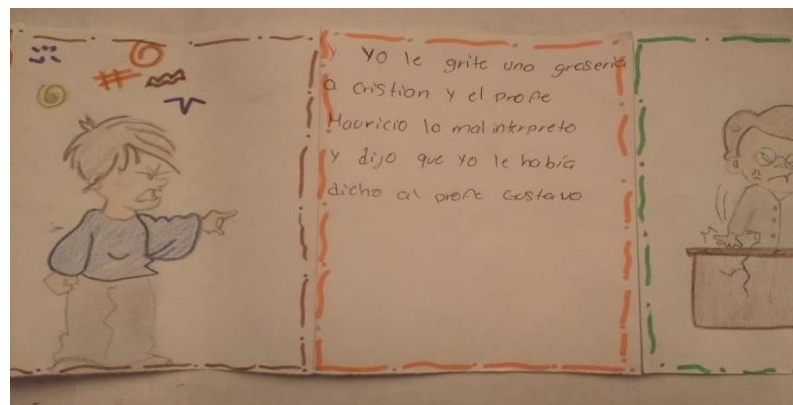 y yo le grite una groseria
a Cristian y el profe
Mauricio lo mal interpreto
y dijo que yo le había
dicho al profe Gustavo